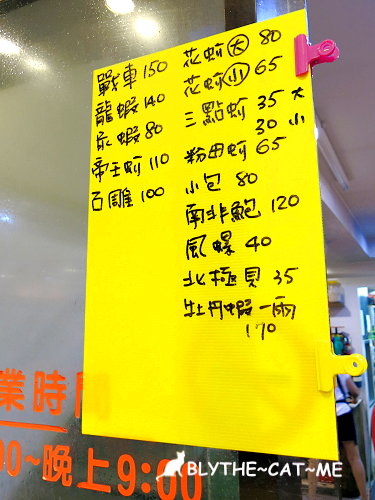 戰車 150
龍蝦 140
角蝦 80
帝王蚵 110
石雕 100
花蚵(大) 80
花蚵(小) 65
三點蚵 35 大
30 小
粉田蚵 65
小包 80
南非鮑 120
風螺 40
北極貝 35
牡丹蝦 一兩
170
業時間
00~晚上9:00
BLYTHE~CAT~ME